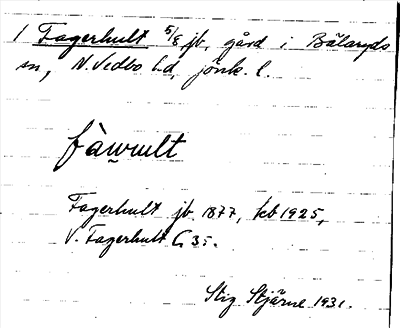 1 Fagerhult 5/8 jb, gård i Bälaryds
sn, N. Vedbo hd, jönk. l.
fàwult
Fagerhult jb 1877, kb 1925,
V. Fagerhult G 35.
Stig Stjärne 1931.